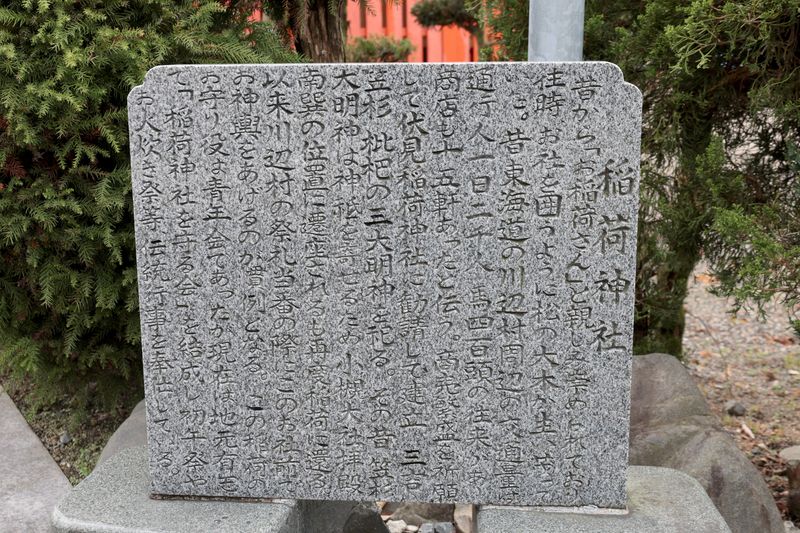 稲荷神社
昔から「お稲荷さん」と親しみ崇められており
往時お社を囲うように松の大木が生い
昔東海道の川辺村周辺の交通量は
通行人一日二千人 馬四百頭の往来があり
商店も十五軒あったと伝う。商売繁盛を祈願
して伏見稲荷神社に勧請して建立 三宮
笠杉 枇杷の三大明神を祀る その昔 笠杉
大明神は神祇を
南巽の位置に遷座されるも再度稲荷に還る
以来川辺村の祭礼当番の際にこのお社前で
お神輿をあげるのが慣例となる。この稲荷の
お守り役は青王会であったが現在は地元有志
で「稲荷神社を母る会」を結成し初午祭や
お火炊き祭等 伝統行事を奉仕している